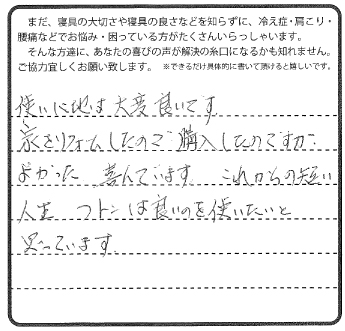 まだ、寝具の大切さや寝具の良さなどを知らずに、冷え症・肩こり・
腰痛などでお悩み・困っている方がたくさんいらっしゃいます。
そんな方達に、あなたの喜びの声が解決の糸口になるかも知れません。
ご協力宜しくお願い致します。 ※できるだけ具体的に書いて頂けると嬉しいです。
使い心地は大変良いです
家をリフォームしたので購入したのですが
よかった 喜んでいます これからの短い
人生 フトンは良いのを使いたいと
思っています